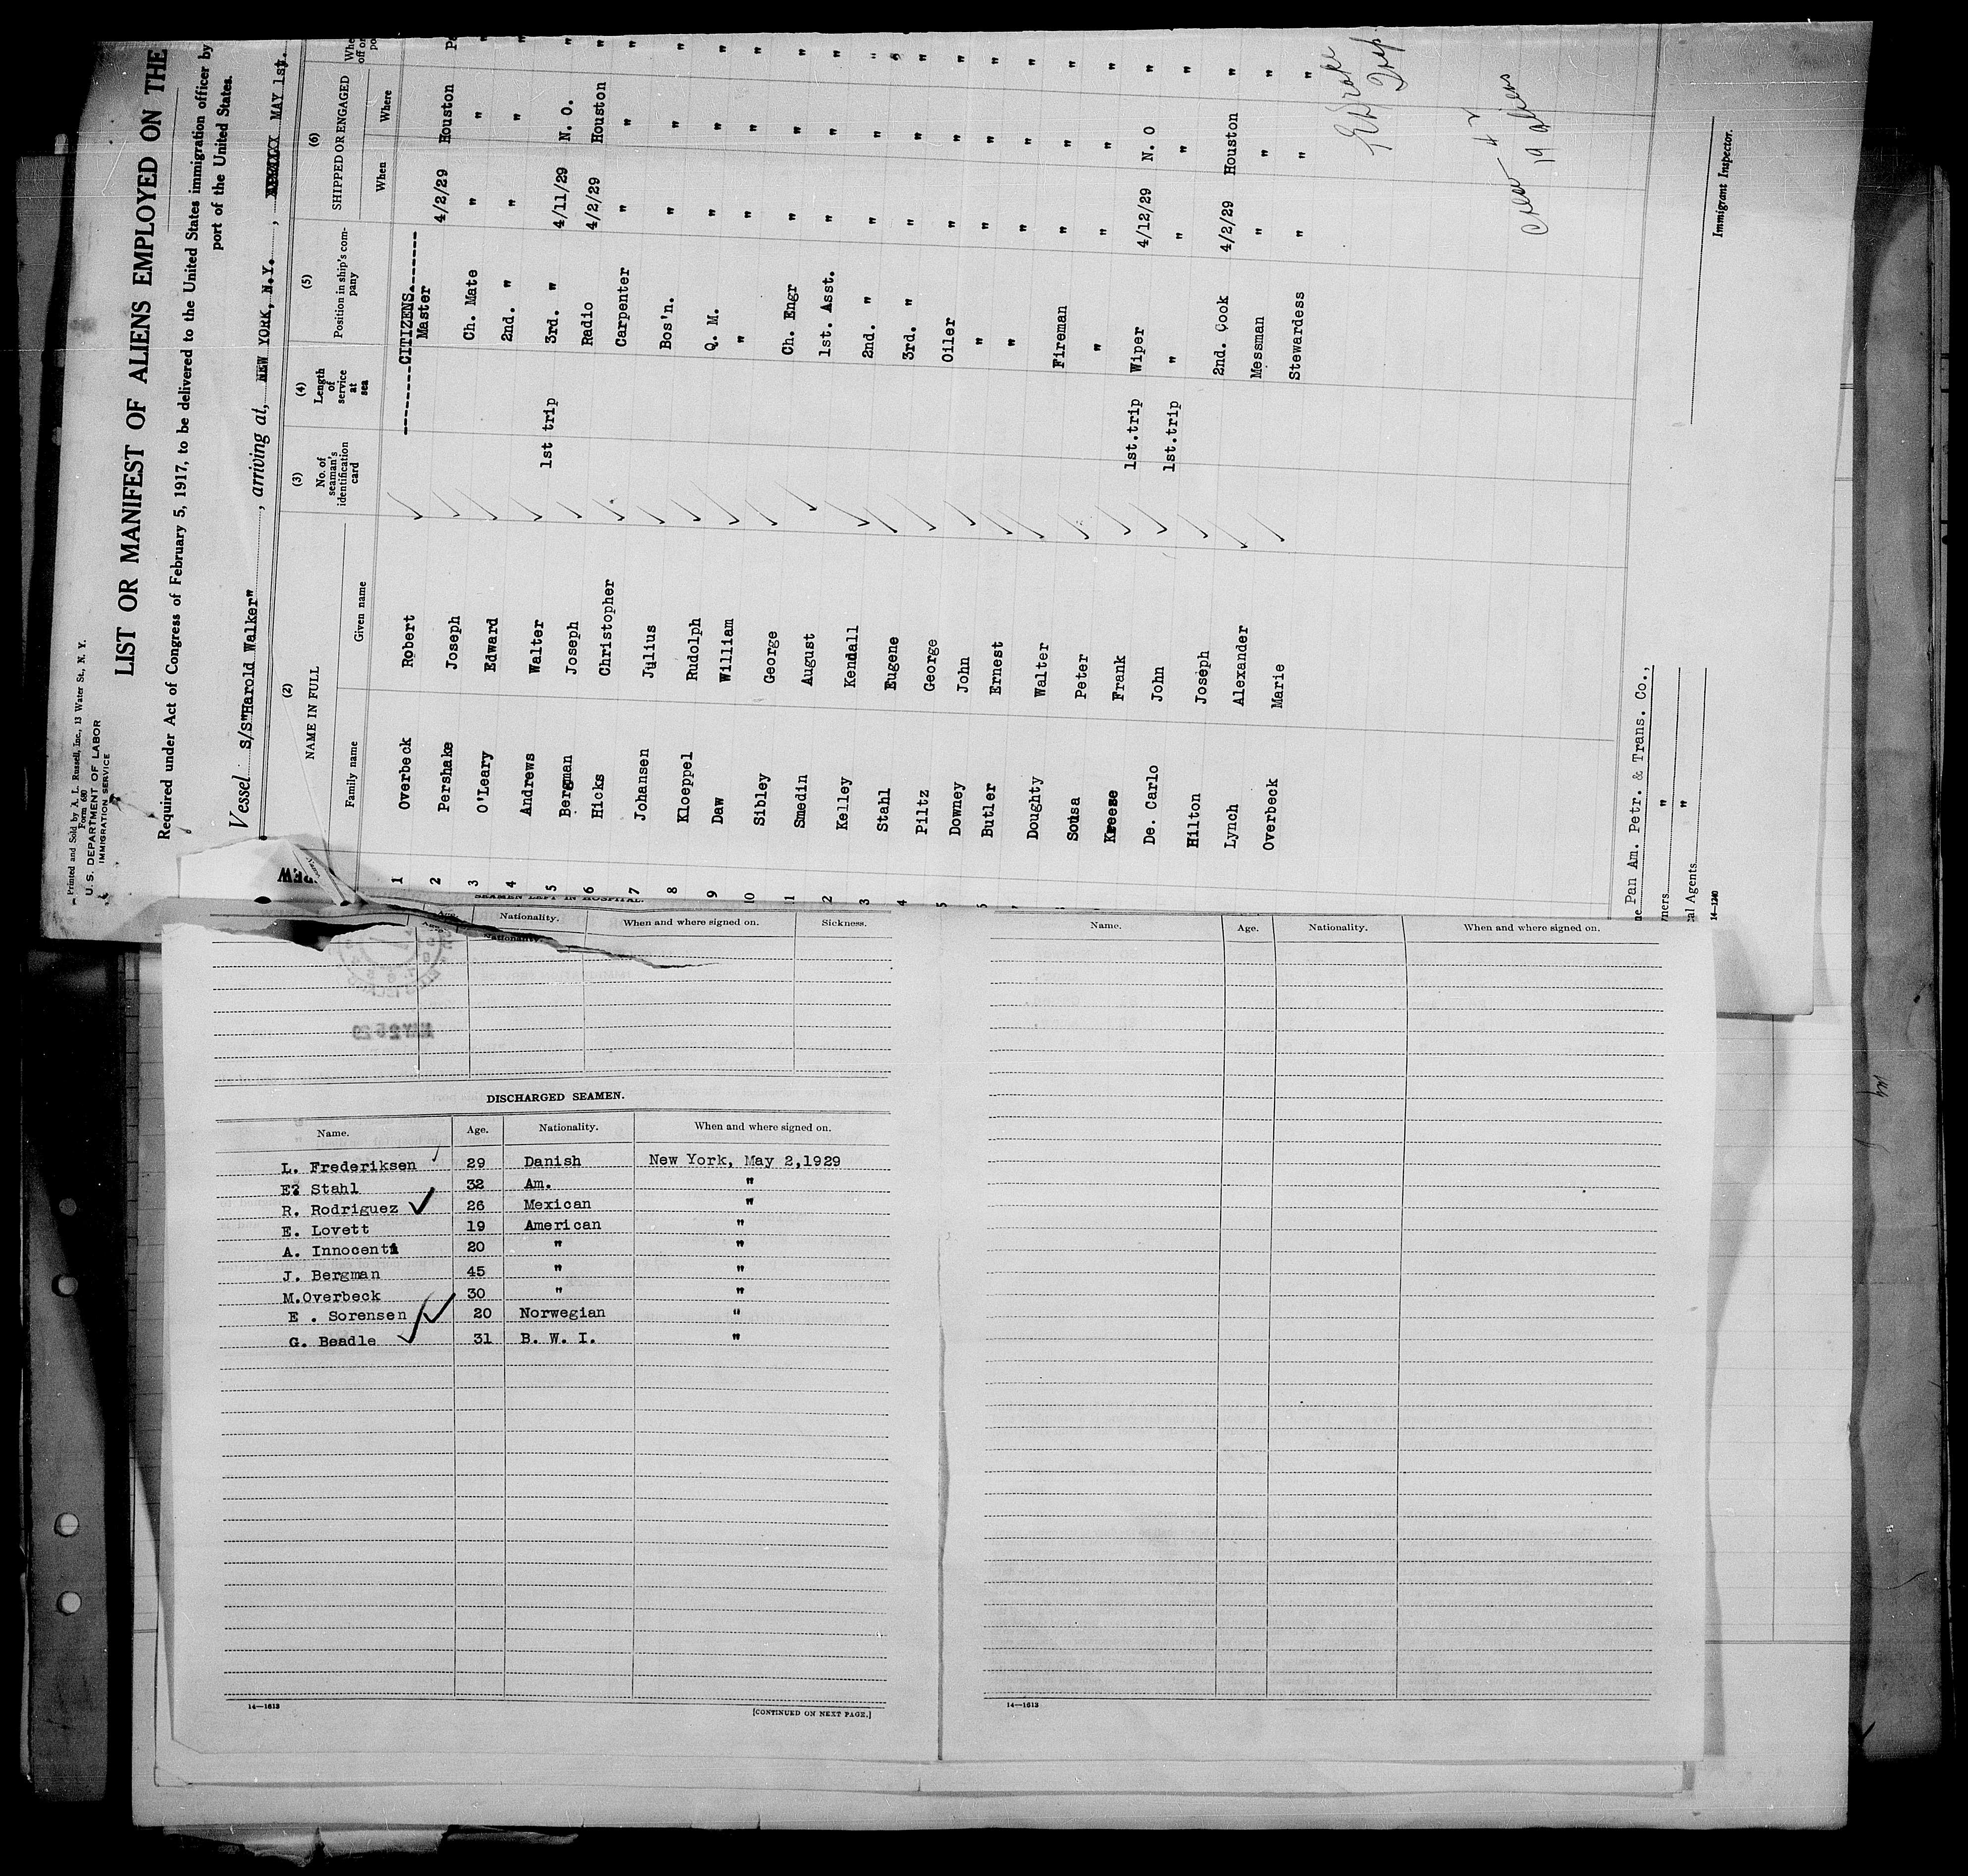 Printed and Sold by A. L. Russell, Inc., 13 Water St., N. Y.
Form 680
U. S. DEPARTMENT OF LABOR
IMMIGRATION SERVICE
LIST OR MANIFEST OF ALIENS EMPLOYED ON THE
Required under Act of Congress of February 5, 1917, to be delivered to the United States immigration officer by
port of the United States.
Vessel S/S"Harold Walker", arriving at, NEW YORK, N.Y., MAY 1st.
(2) (3) (4) (5) (6)
NAME IN FULL No. of seaman's identification card Length of service at sea Position in ship's company SHIPPED OR ENGAGED
Family name Given name When Where
--------CITIZENS.--------
1 Overbeck Robert Master 4/2/29 Houston
2 Pershake Joseph Ch. Mate " "
3 O'Leary Edward 2nd. " " "
4 Andrews Walter 1st trip 3rd. " 4/11/29 N. O.
5 Bergman Joseph Radio 4/2/29 Houston
6 Hicks Christopher Carpenter " "
7 Johansen Julius Bos'n. " "
8 Kloeppel Rudolph Q. M. " "
9 Daw William " " "
10 Sibley George Ch. Engr " "
11 Smedin August 1st. Asst. " "
2 Kelley Kendall 2nd. " " "
3 Stahl Eugene 3rd. " " "
4 Piltz George Oiler " "
5 Downey John " " "
Butler Ernest " " "
Doughty Walter Fireman " "
Sousa Peter " " "
Kreese Frank 1st.trip Wiper 4/12/29 N. O
De. Carlo John 1st.trip " " "
Hilton Joseph 2nd. Cook 4/2/29 Houston
Lynch Alexander Messman " "
Overbeck Marie Stewardess " "
Crew 42
19 aliens
Immigrant Inspector.
Pan Am. Petr. & Trans. Co.,
ners " "
al Agents " "
14-1240
SEAMEN LEFT IN HOSPITAL.
Age. Nationality. When and where signed on. Sickness.
Nationality.
MAY 2 5 29
Name. Age. Nationality. When and where signed on.
DISCHARGED SEAMEN.
Name. Age. Nationality. When and where signed on.
L. Frederiksen 29 Danish New York, May 2,1929
E? Stahl 32 Am. "
R. Rodriguez 26 Mexican "
E. Lovett 19 American "
A. Innocenti 20 " "
J. Bergman 45 " "
M.Overbeck 30 " "
E . Sorensen 20 Norwegian "
G. Beadle 31 B. W. I. "
14—1613
[CONTINUED ON NEXT PAGE.]
14—1613